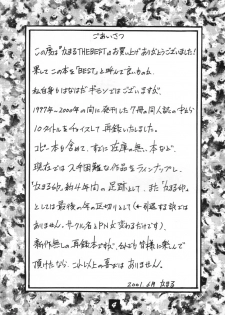 ごあいさつ
この度は「なまるTHE BEST」のお買い上げありがとうございます!
果してこの本を「BEST」と呼んで良いものか
私自身かりはなはだギモンではございますが
1997年~2000年の間に発刊した7冊の同人誌の中から
10タイトルをチョイスして再録いたしました。
コピー本も含めて、すでに在庫の無い本など
現在では入手困難な作品をラインナップし、
約4年間の足跡として、また
としては最後の年の区切りとして
ありません。サークル名とPNが変わるだけで)
新作無しの再録本ですが、皆様に楽しんで
頂けたなら、これ以上の喜びはありません。
2001.6月